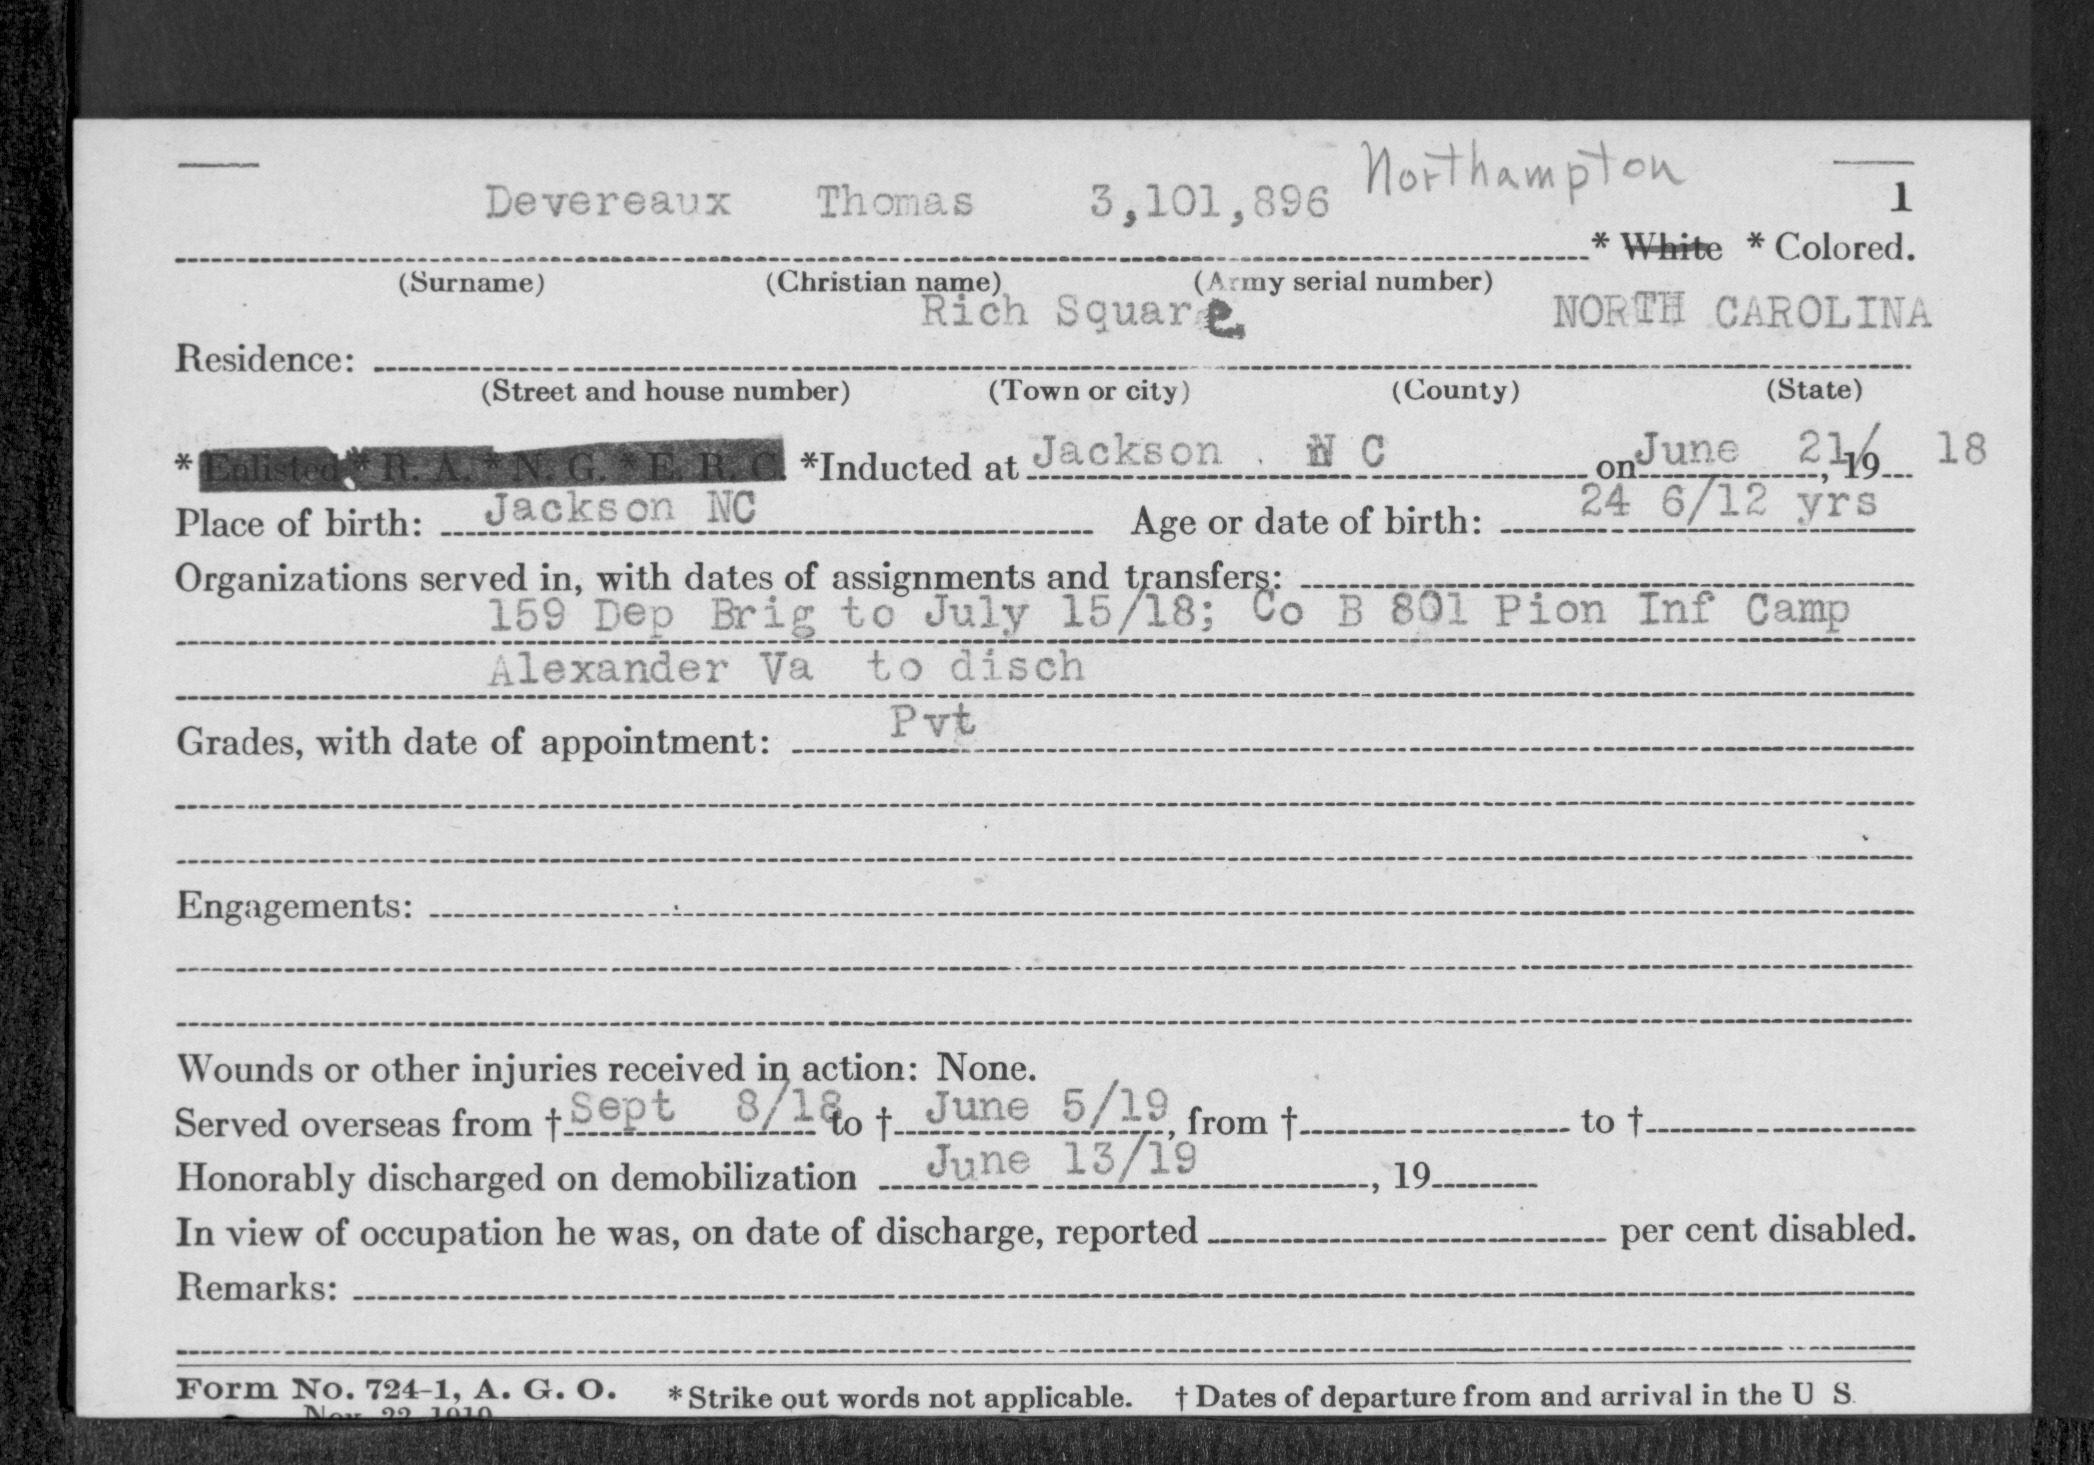 Northampton
Devereaux Thomas 3,101,896 1
* White * Colored.
(Surname) (Christian name) (Army serial number)
Rich Square NORTH CAROLINA
Residence:
(Street and house number) (Town or city) (County) (State)
* Enlisted * R. A. * N. G. * E. R. C. *Inducted at Jackson N C on June 21/, 19 18
Place of birth: Jackson NC Age or date of birth: 24 6/12 yrs
Organizations served in, with dates of assignments and transfers:
159 Dep Brig to July 15/18; Co B 801 Pion Inf Camp
Alexander Va to disch
Grades, with date of appointment: Pvt
Engagements:
Wounds or other injuries received in action: None.
Served overseas from † Sept 8/18 to † June 5/19, from † to †
Honorably discharged on demobilization June 13/19, 19
In view of occupation he was, on date of discharge, reported per cent disabled.
Remarks:
Form No. 724-1, A. G. O. * Strike out words not applicable. † Dates of departure from and arrival in the U S.
Nov. 22, 1919